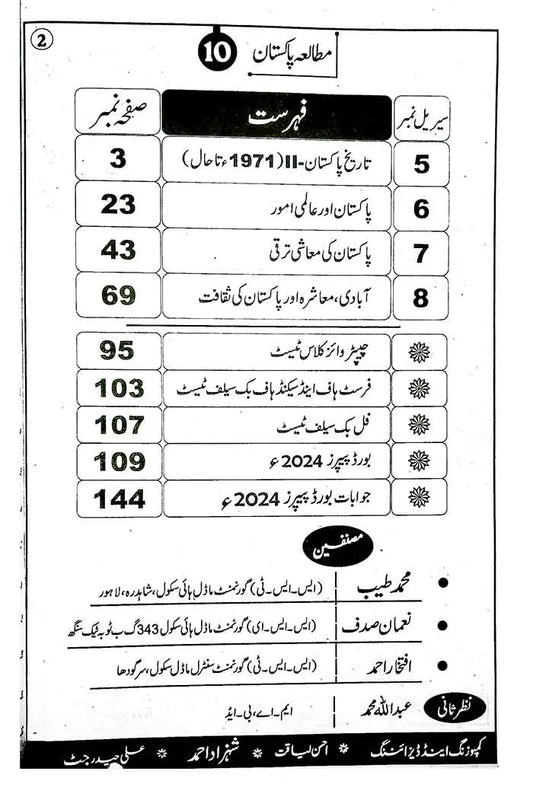 2
مطالعہ پاکستان 10
سیریل نمبر فہرست صفحہ نمبر
5 تاریخ پاکستان-II (1971ء تا حال) 3
6 پاکستان اور عالمی امور 23
7 پاکستان کی معاشی ترقی 43
8 آبادی، معاشرہ اور پاکستان کی ثقافت 69
چیپٹر وائز کلاس ٹیسٹ 95
فرسٹ ہاف اینڈ سیکنڈ ہاف بک سیلف ٹیسٹ 103
فل بک سیلف ٹیسٹ 107
بورڈ پیپرز 2024ء 109
جوابات بورڈ پیپرز 2024ء 144
مصنفین
محمد طیب (ایس۔ایس۔ٹی) گورنمنٹ ماڈل ہائی سکول، شاہدرہ، لاہور
نعمان صدف (ایس۔ایس۔ای) گورنمنٹ ماڈل ہائی سکول 343 گ ب ٹوبہ ٹیک سنگھ
افتخار احمد (ایس۔ایس۔ٹی) گورنمنٹ سنٹرل ماڈل سکول، سرگودھا
نظر ثانی عبداللہ محمد ایم۔اے، بی۔ایڈ
کمپوزنگ اینڈ ڈیزائننگ احسن لیاقت شہزاد احمد علی حیدر جٹ